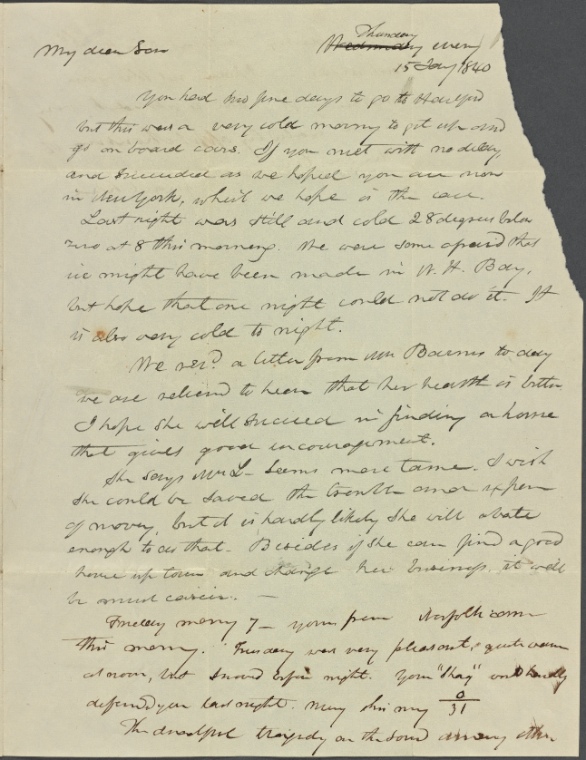 Thursday
My dear Son Wednesday eveng
15 Jany 1840
You had two fine days to go to Hartford
but this was a very cold morng to get up and
go on board cars. If you met with no delay
and succeeded as we hoped you are now
in New York, which we hope is the case.
Last night was still and cold 28 degrees below
zero at 8 this morning. We were some afraid that
ice might have been made in N. H. Bay,
but hope that one night could not do it. It
is also very cold to night.
We recd. a letter from Mrs Barnes to day
we are relieved to hear that her health is better
I hope she will succeed in finding a home
that gives good encouragement.
She says Mr L- seems more tame. I wish
she could be saved the trouble and expense
of moving, but it is hardly likely she will abate
enough to do that. Besides if she can find a good
house up town and change her business, it will
be much easier. —
Friday morng 7 — yours from Norfolk came
this morng. Tuesday was very pleasant, & quite warm
at noon, but snowed before night. Your "Shag" would hardly
defend you last night. this morg 0/31
The dreadful tragedy on the sound among other